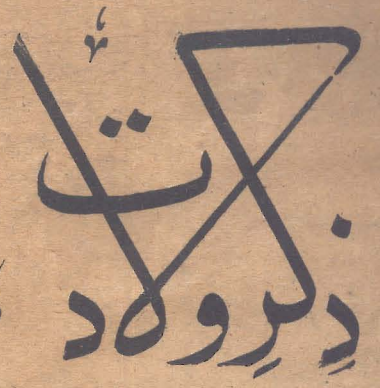 ذِکرِ ولادت